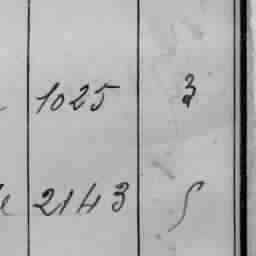 1025 3
2143